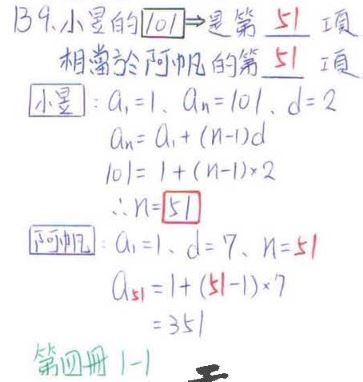 139.小昱的101⇒是第 51 項
相當於阿帆的第 51 項
小昱:a₁=1、aₙ=101、d=2
aₙ=a₁+(n-1)d
101=1+(n-1)×2
∴n=51
阿帆:a₁=1、d=7、n=51
a₅₁=1+(51-1)×7
=351
第四冊 1-1